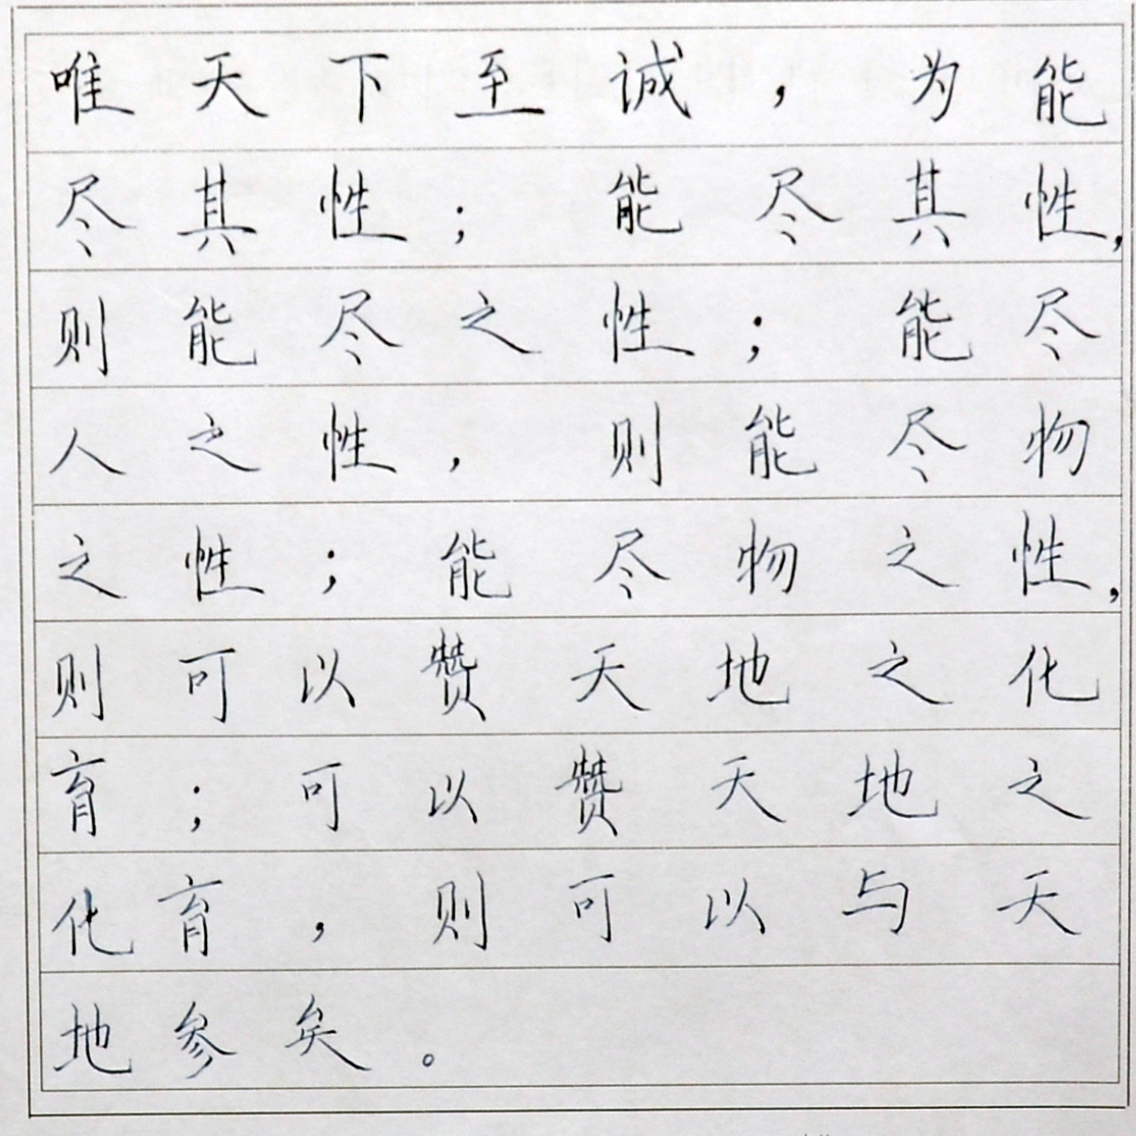 唯天下至诚，为能
尽其性；能尽其性，
则能尽之性；能尽
人之性，则能尽物
之性；能尽物之性，
则可以赞天地之化
育；可以赞天地之
化育，则可以与天
地参矣。